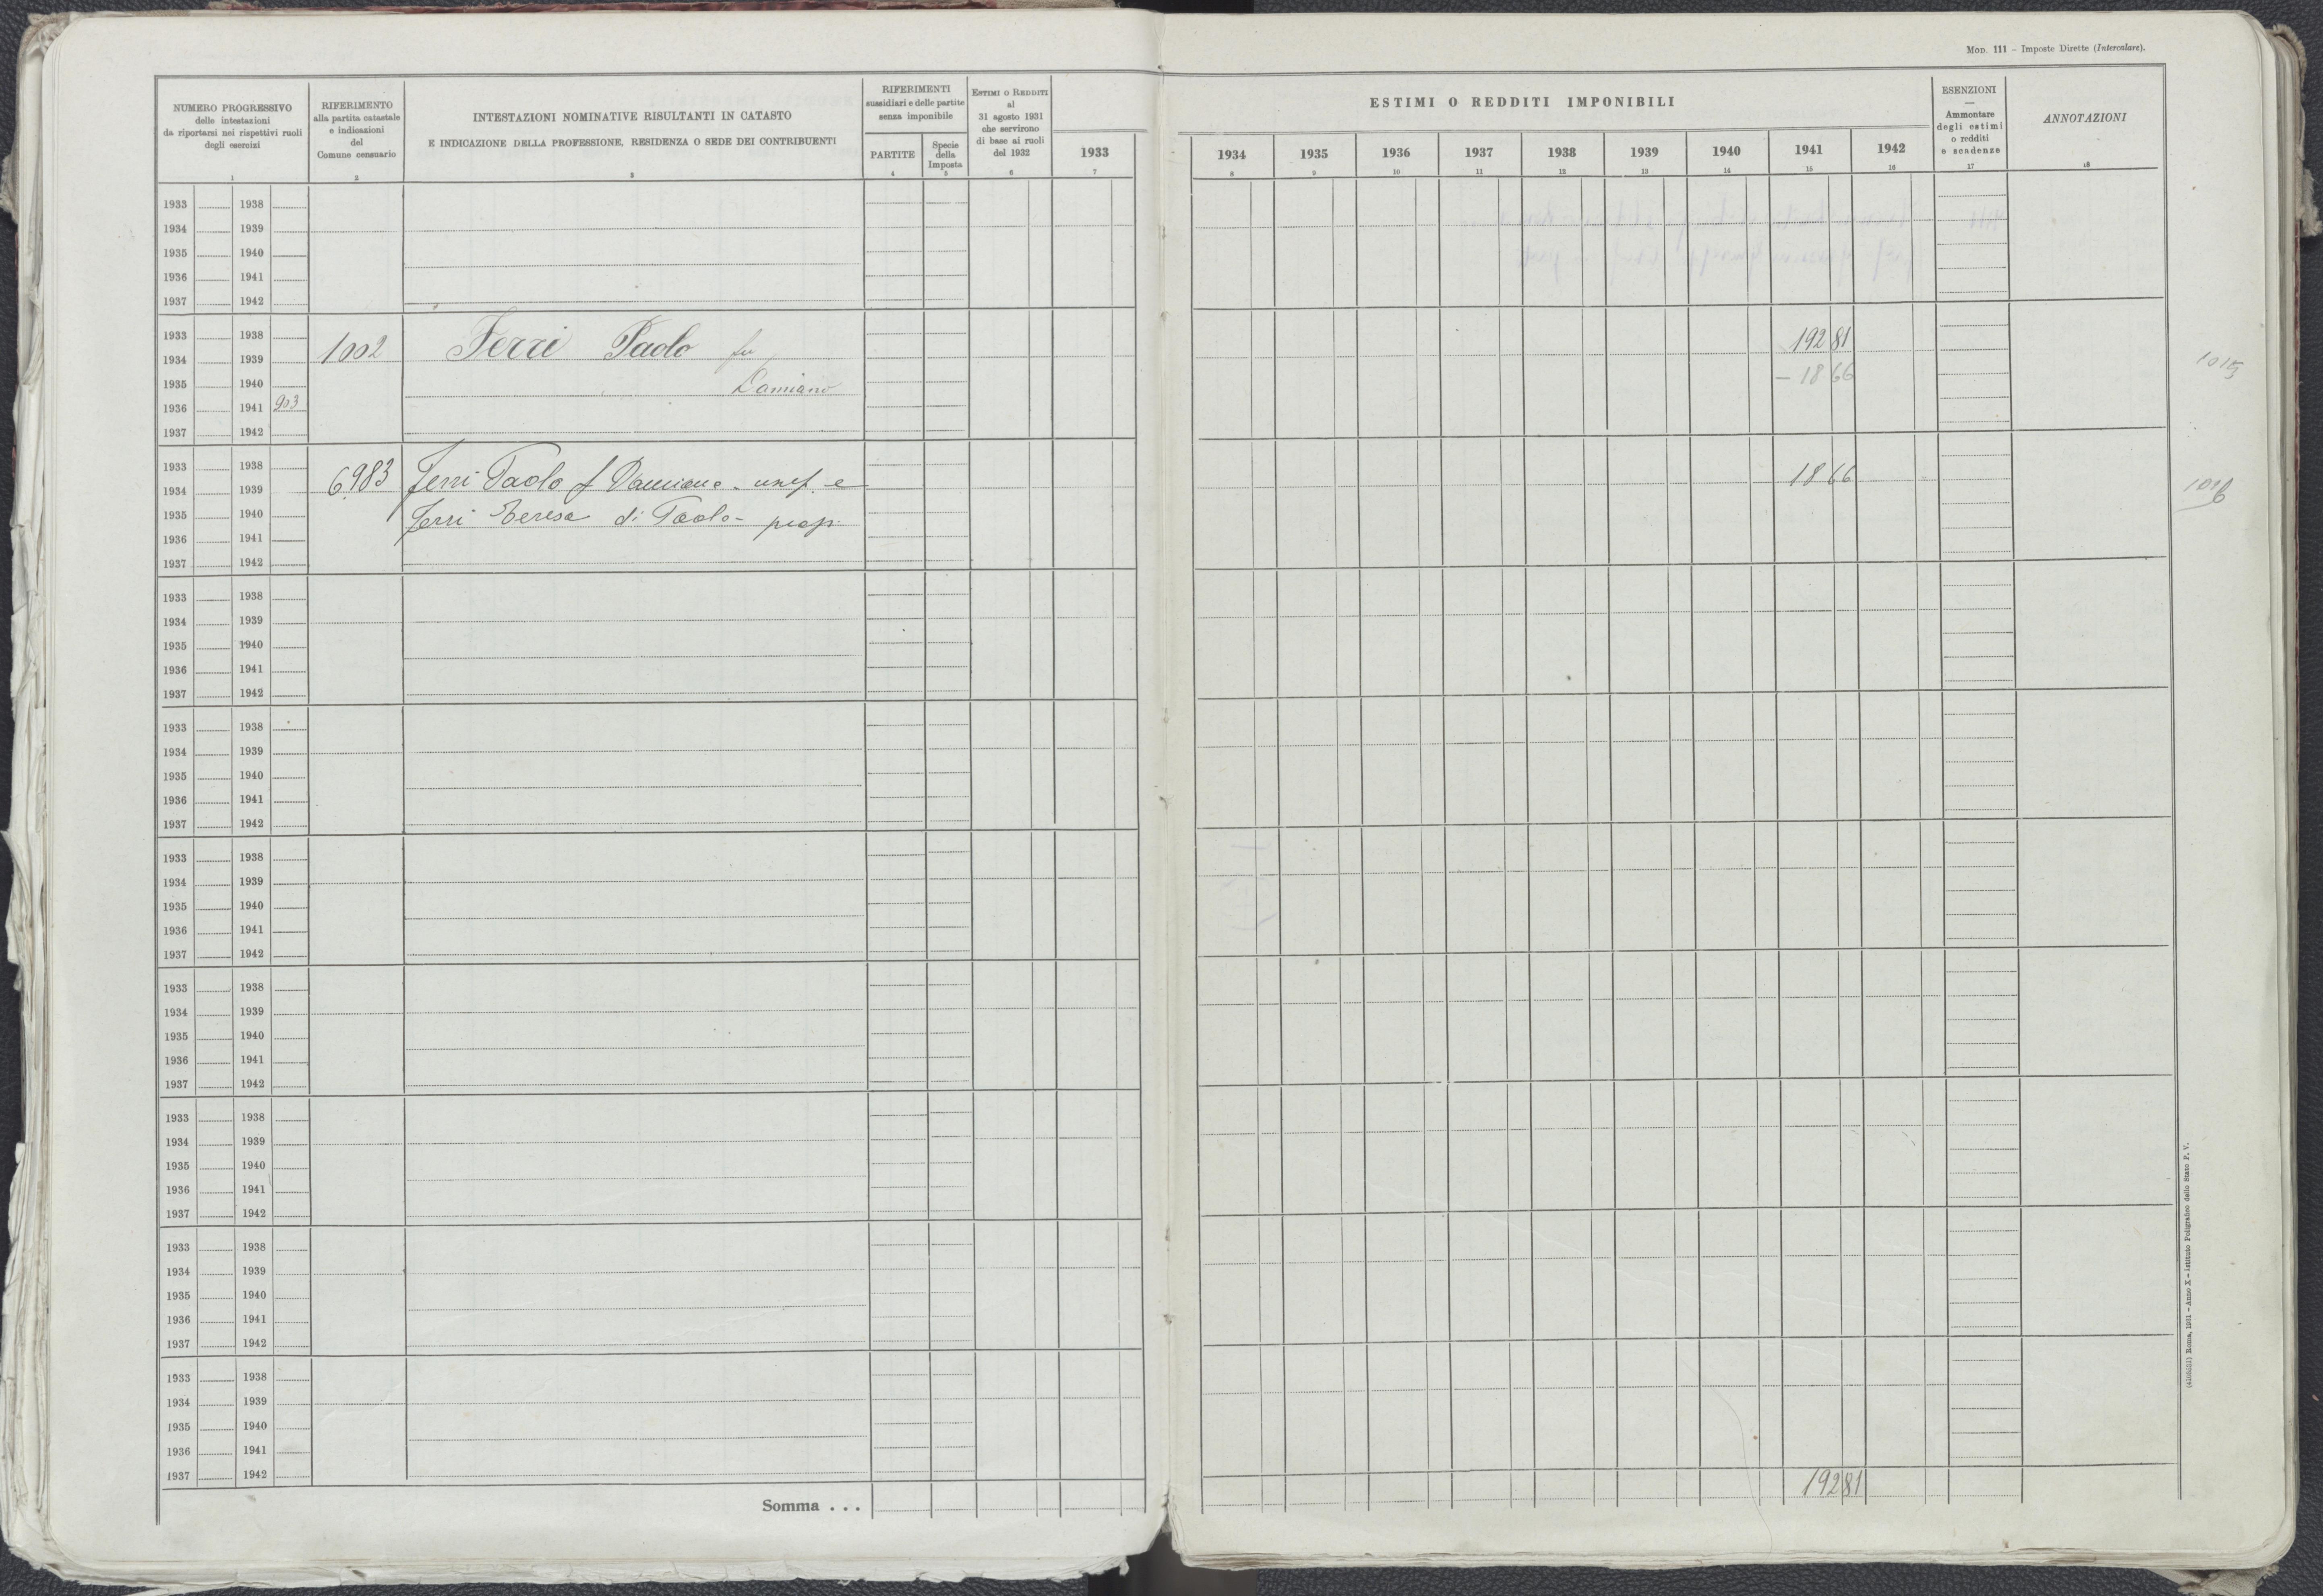 MOD. 111 - Imposte Dirette (Intercalare).
NUMERO PROGRESSIVO
delle intestazioni
da riportarsi nei rispettivi ruoli
degli esercizi
1
RIFERIMENTO
alla partita catastale
e indicazioni
del
Comune censuario
2
INTESTAZIONI NOMINATIVE RISULTANTI IN CATASTO
E INDICAZIONE DELLA PROFESSIONE, RESIDENZA O SEDE DEI CONTRIBUENTI
3
RIFERIMENTI
sussidiari e delle partite
senza imponibile
PARTITE
4
Specie
della
Imposta
5
ESTIMI O REDDITI
al
31 agosto 1931
che servirono
di base ai ruoli
del 1932
6
ESTIMI O REDDITI IMPONIBILI
1933 1934 1935 1936 1937 1938 1939 1940 1941 1942
7 8 9 10 11 12 13 14 15 16
ESENZIONI
—
Ammontare
degli estimi
o redditi
e scadenze
17
ANNOTAZIONI
18
1933 1938
1934 1939
1935 1940
1936 1941
1937 1942
1933 1938
1934 1939 1002 Ferri Paolo fu 192 81
1935 1940 Damiano - 18 66
1936 1941 903
1937 1942
1933 1938
1934 1939 6983 Ferri Paolo f Damiano - usuf. e 18 66
1935 1940 Ferri Teresa di Paolo - prop.
1936 1941
1937 1942
1933 1938
1934 1939
1935 1940
1936 1941
1937 1942
1933 1938
1934 1939
1935 1940
1936 1941
1937 1942
1933 1938
1934 1939
1935 1940
1936 1941
1937 1942
1933 1938
1934 1939
1935 1940
1936 1941
1937 1942
1933 1938
1934 1939
1935 1940
1936 1941
1937 1942
1933 1938
1934 1939
1935 1940
1936 1941
1937 1942
1933 1938
1934 1939
1935 1940
1936 1941
1937 1942
Somma . . . 192 81
Roma, 1931 - Anno X - Istituto Poligrafico dello Stato P. V.